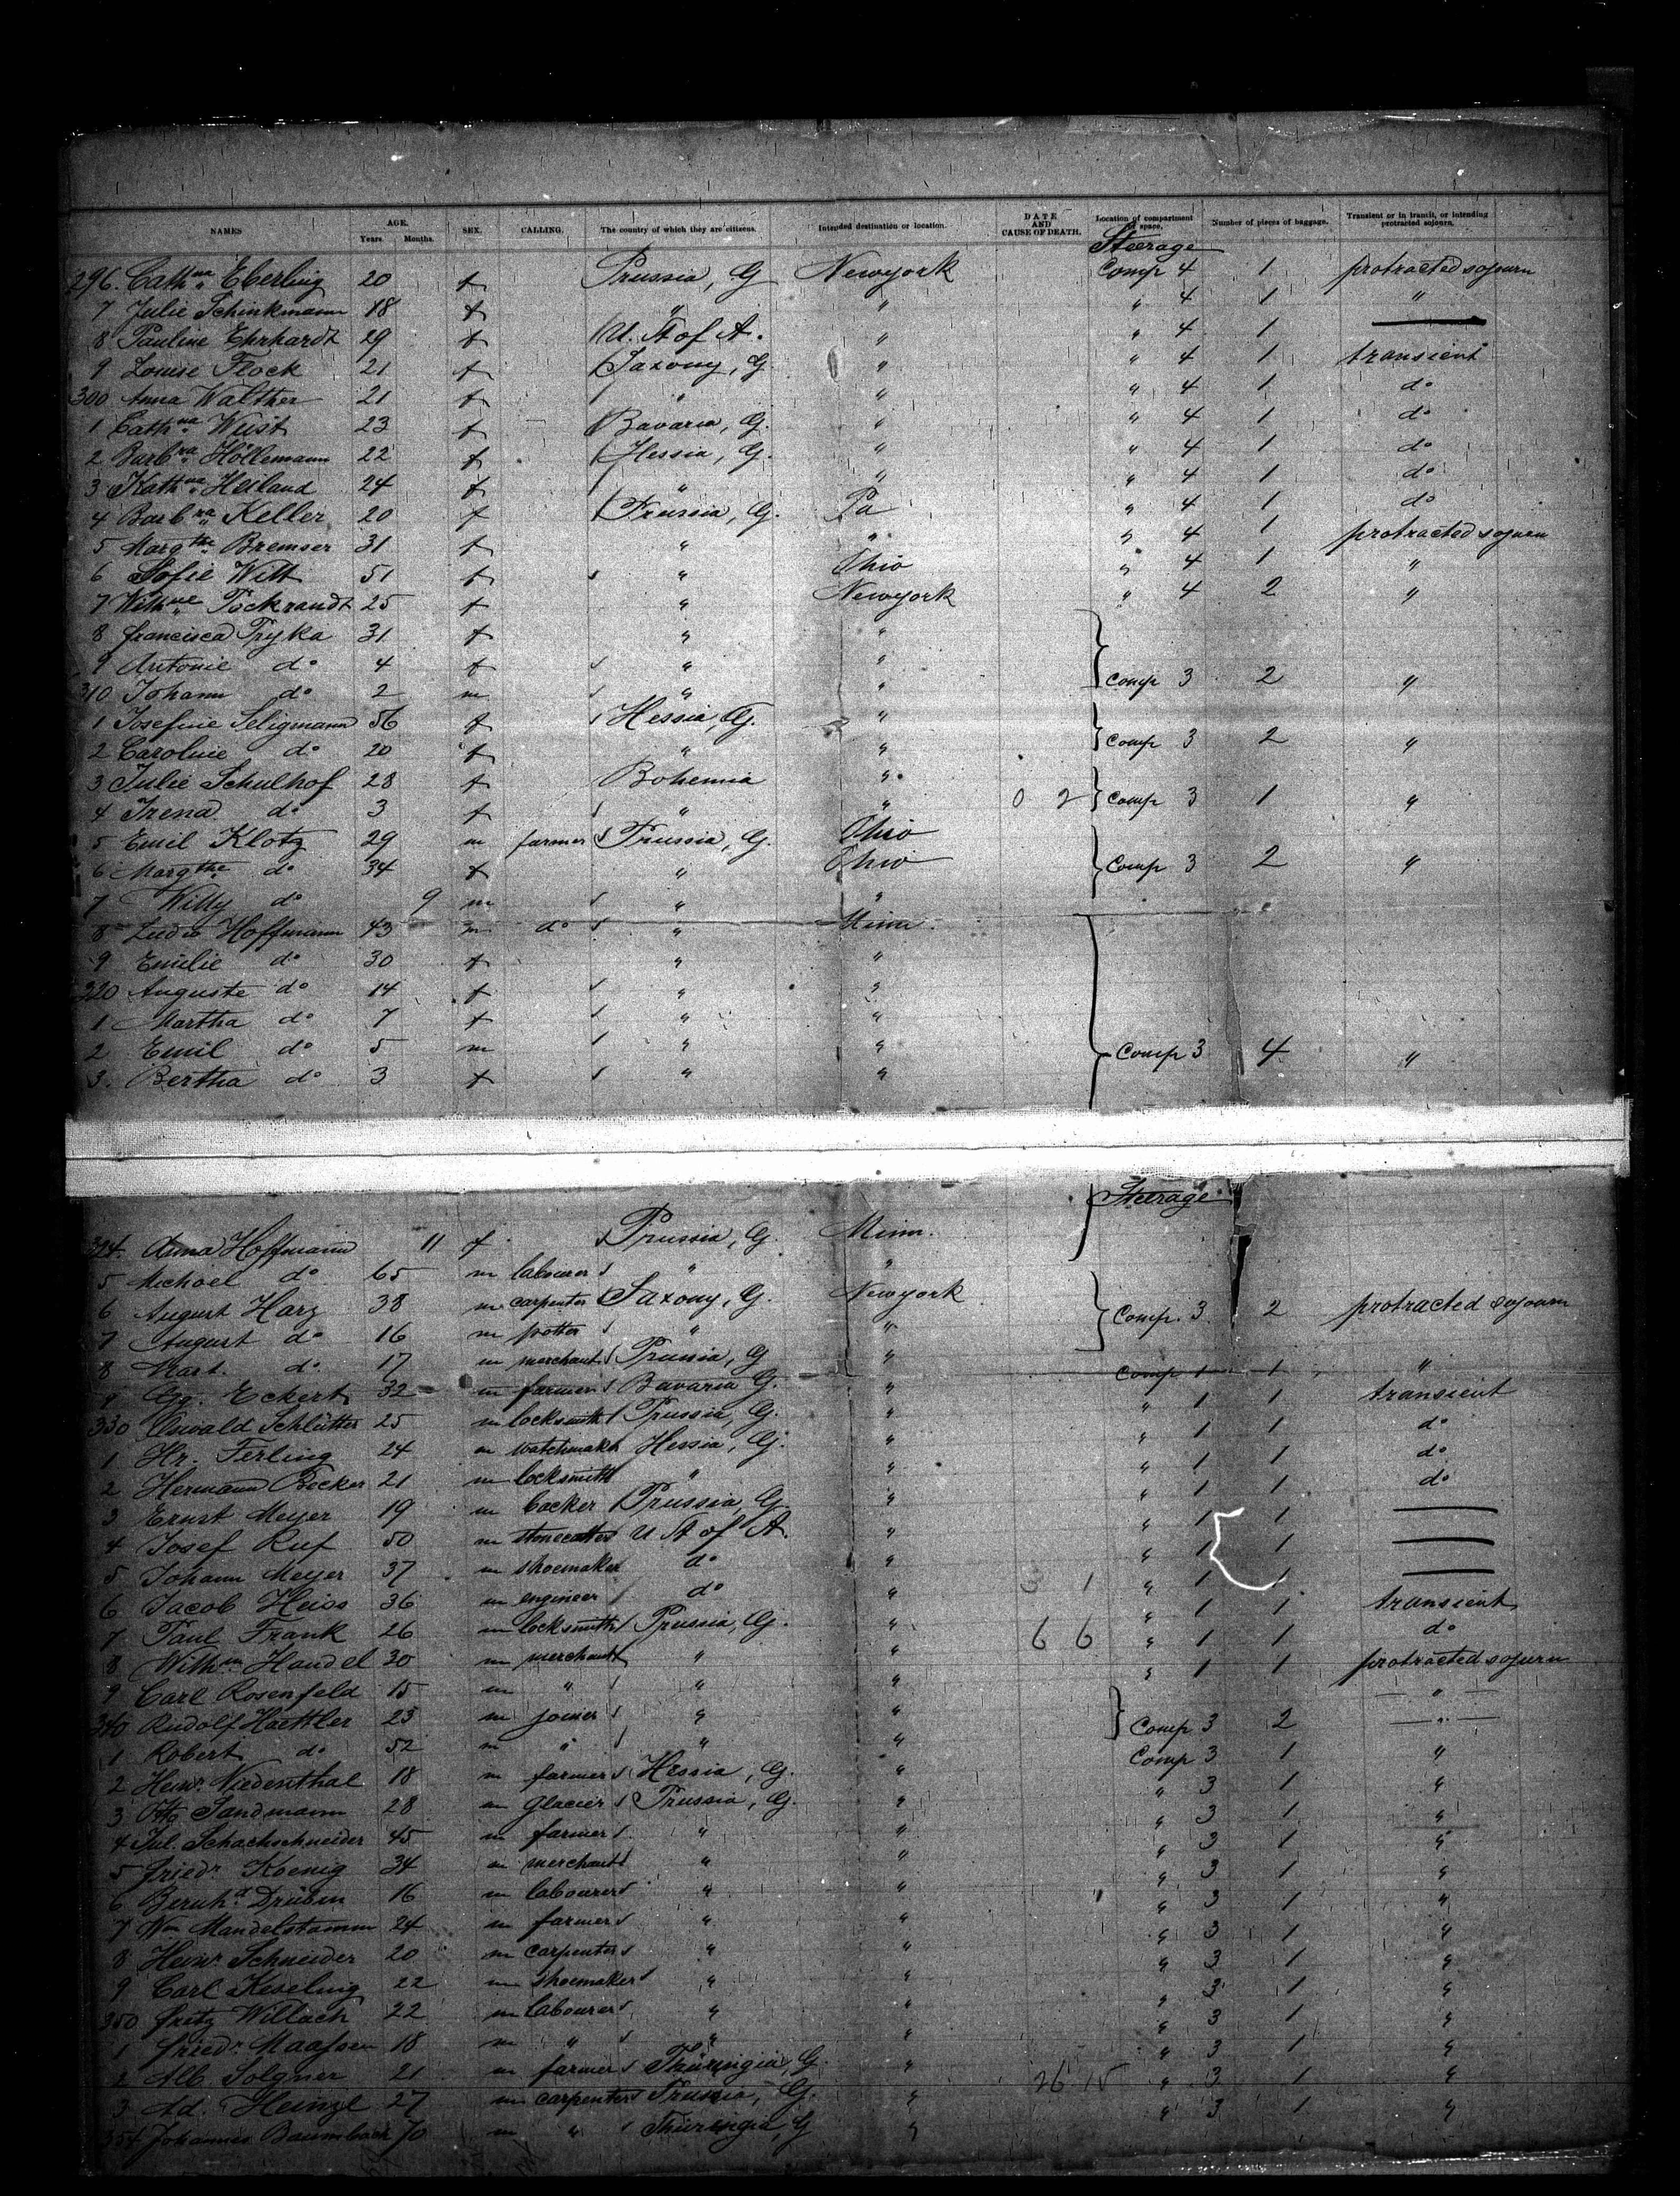 NAMES AGE. Years. Months. SEX. CALLING. The country of which they are citizens. Intended destination or location. DATE AND CAUSE OF DEATH. Location of compartment or space. Number of pieces of baggage. Transient or in transit, or intending protracted sojourn.
Steerage
296. Cathna Eberling 20 f Prussia, G Newyork Comp 4 1 protracted sojourn
7 Julie Schinkmann 18 f " " " 4 1 "
8 Pauline Ehrhardt 29 f U. St of A. " " 4 1 —
9 Louise Flock 21 f Saxony, G. " " 4 1 transient
300 Anna Walther 21 f " " " 4 1 do
1 Cathna Wüst 23 f Bavaria, G. " " 4 1 do
2 Barbra Höllemann 22 f Hessia, G. " " 4 1 do
3 Kathna Heiland 24 f " " " 4 1 do
4 Barbra Keller 20 f Prussia, G. Pa " 4 1 do
5 Margthe Bremser 31 f " " " 4 1 protracted sojourn
6 Sofie Witt 51 f " Ohio " 4 1 "
7 Wilhne Pockrandt 25 f " Newyork " 4 2 "
8 Francisca Tryka 31 f " "
9 Antonie do 4 f " "
310 Johann do 2 m " " Comp 3 2 "
1 Josefine Seligmann 56 f Hessia, G. "
2 Caroline do 20 f " " Comp 3 2 "
3 Julie Schulhof 28 f Bohemia "
4 Irena do 3 f " " 0 2 Comp 3 1 "
5 Emil Klotz 29 m farmer Prussia, G. Ohio
6 Margthe do 34 f " Ohio Comp 3 2 "
7 Willy do 9 m " "
8 Ludw Hoffmann 43 m do " Minn.
9 Emilie do 30 f " "
320 Auguste do 14 f " "
1 Martha do 7 f " "
2 Emil do 5 m " " Comp 3 4 "
3. Bertha do 3 f " "
Steerage
324. Anna Hoffmann 11 f Prussia, G. Minn.
5 Michael do 65 m labourer " "
6 August Harz 38 m carpenter Saxony, G. Newyork Comp. 3 2 protracted sojourn
7 August do 16 m potter " "
8 Mart. do. 17 m merchant Prussia, G " Comp 1 1 "
9 Gg. Eckert 32 m farmer Bavaria G. " " 1 1 transient
330 Oswald Schlütter 25 m locksmith Prussia, G. " " 1 1 do
1 Hr. Ferling 24 m watchmaker Hessia, G. " " 1 1 do
2 Hermann Becker 21 m locksmith " " " 1 1 do
3 Ernst Meyer 19 m backer Prussia, G. " " 1 1 —
4 Josef Ruf 50 m stonecutter U St of A. " " 1 1 —
5 Johann Meyer 37 m shoemaker do " " 1 1 —
6 Jacob Heiss 36 m engineer do " 3 1 " 1 1 transient
7 Paul Frank 26 m locksmith Prussia, G. " 6 6 " 1 1 do
8 Wilhm Handel 30 m merchant " " " 1 1 protracted sojurn
9 Carl Rosenfeld 15 m " " " "
340 Rudolf Haettler 23 m joiner " " Comp 3 2 "
1 Robert do 52 m " " " Comp 3 1 "
2 Heinr. Niedenthal 18 m farmer Hessia, G. " " 3 1 "
3 Otto Sandmann 28 m glacier Prussia, G. " " 3 1 "
4 Jul. Schachschneider 45 m farmer " " " 3 1 "
5 Friedr. Koenig 34 m merchant " " " 3 1 "
6 Bernhd Drüben 16 m labourer " " " 3 1 "
7 Wm Mandelstamm 24 m farmer " " " 3 1 "
8 Heinr. Schneider 20 m carpenter " " " 3 1 "
9 Carl Keseling 22 m shoemaker " " " 3 1 "
350 Fritz Willach 22 m labourer " " " 3 1 "
1 Friedr. Maassen 18 m " " " " 3 1 "
2 Alb. Solgner 21 m farmer Thüringia, G. " 26 15 " 3 1 "
3 Ad. Heinzl 27 m carpenter Prussia, G. " " 3 1 "
354 Johannes Baumbach 70 m " Thüringia, G "